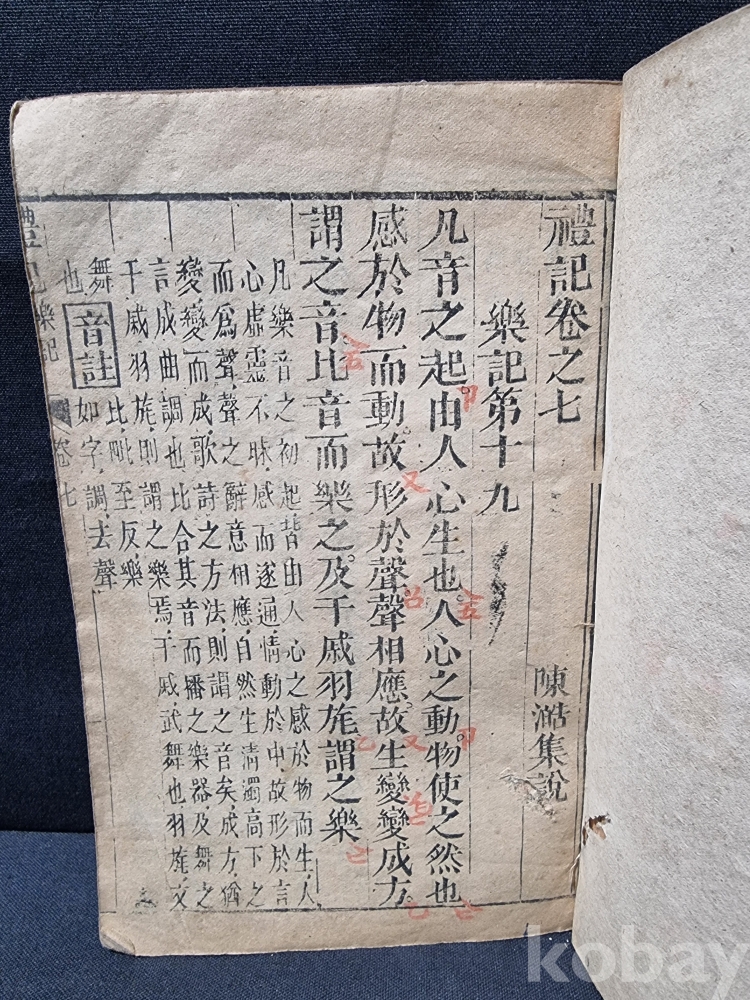 禮記卷之七
陳澔集說
樂記第十九
凡音之起由人心生也人心之動物使之然也
感於物而動故形於聲聲相應故生變變成方
謂之音比音而樂之及干戚羽旄謂之樂
凡樂音之初起皆由人心之感於物而生人
心虛靈不昧感而遂通情動於中故形於言
而爲聲聲之辭意相應自然生淸濁高下之
變變而成歌詩之方法則謂之音矣成方猶
言成曲調也比合其音而播之樂器及舞之
干戚羽旄則謂之樂焉干戚武舞也羽旄文
舞也
音註
比毗至反樂
如字調去聲
禮記
樂記
卷七
kobay